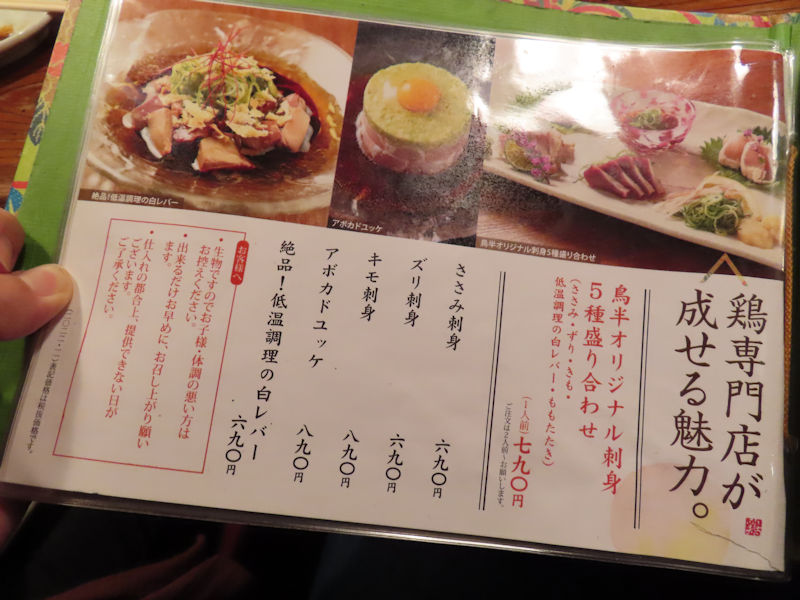 鶏専門店が
成せる魅力。
鳥半オリジナル刺身
5種盛り合わせ
(ささみ・ずり・きも・
低温調理の白レバー・ももたたき)
(1人前)七九〇円
ご注文は2人前〜お願いします。
ささみ刺身 六九〇円
ズリ刺身 六九〇円
キモ刺身 八九〇円
アボカドユッケ 八九〇円
絶品!低温調理の白レバー 六九〇円
お客様へ
・生物ですのでお子様・体調の悪い方は
お控えください。
・出来るだけお早めに、お召し上がり願い
ます。
・仕入れの都合上、提供できない日が
ございます。
ご了承ください。
表記価格は税抜価格です。
絶品!低温調理の白レバー
アボカドユッケ
鳥半オリジナル刺身5種盛り合わせ